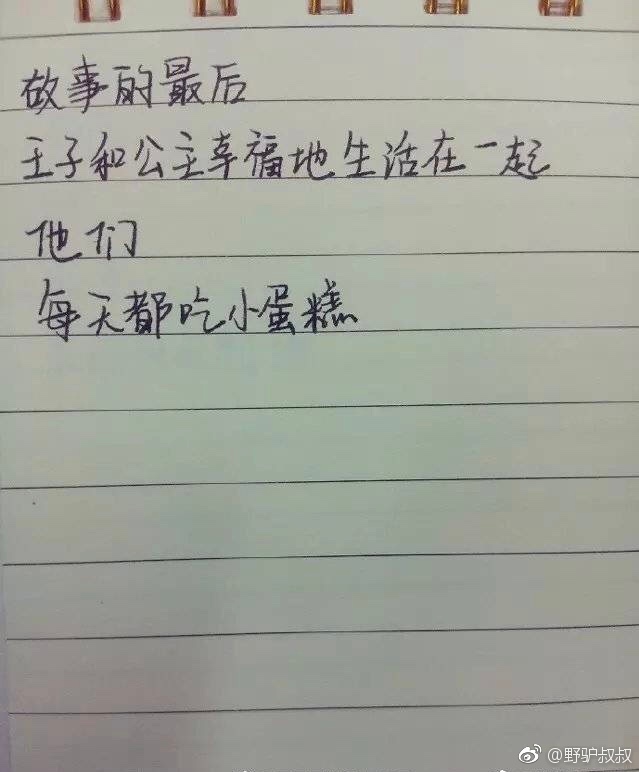 故事的最后
王子和公主幸福地生活在一起
他们
每天都吃小蛋糕
@野驴叔叔